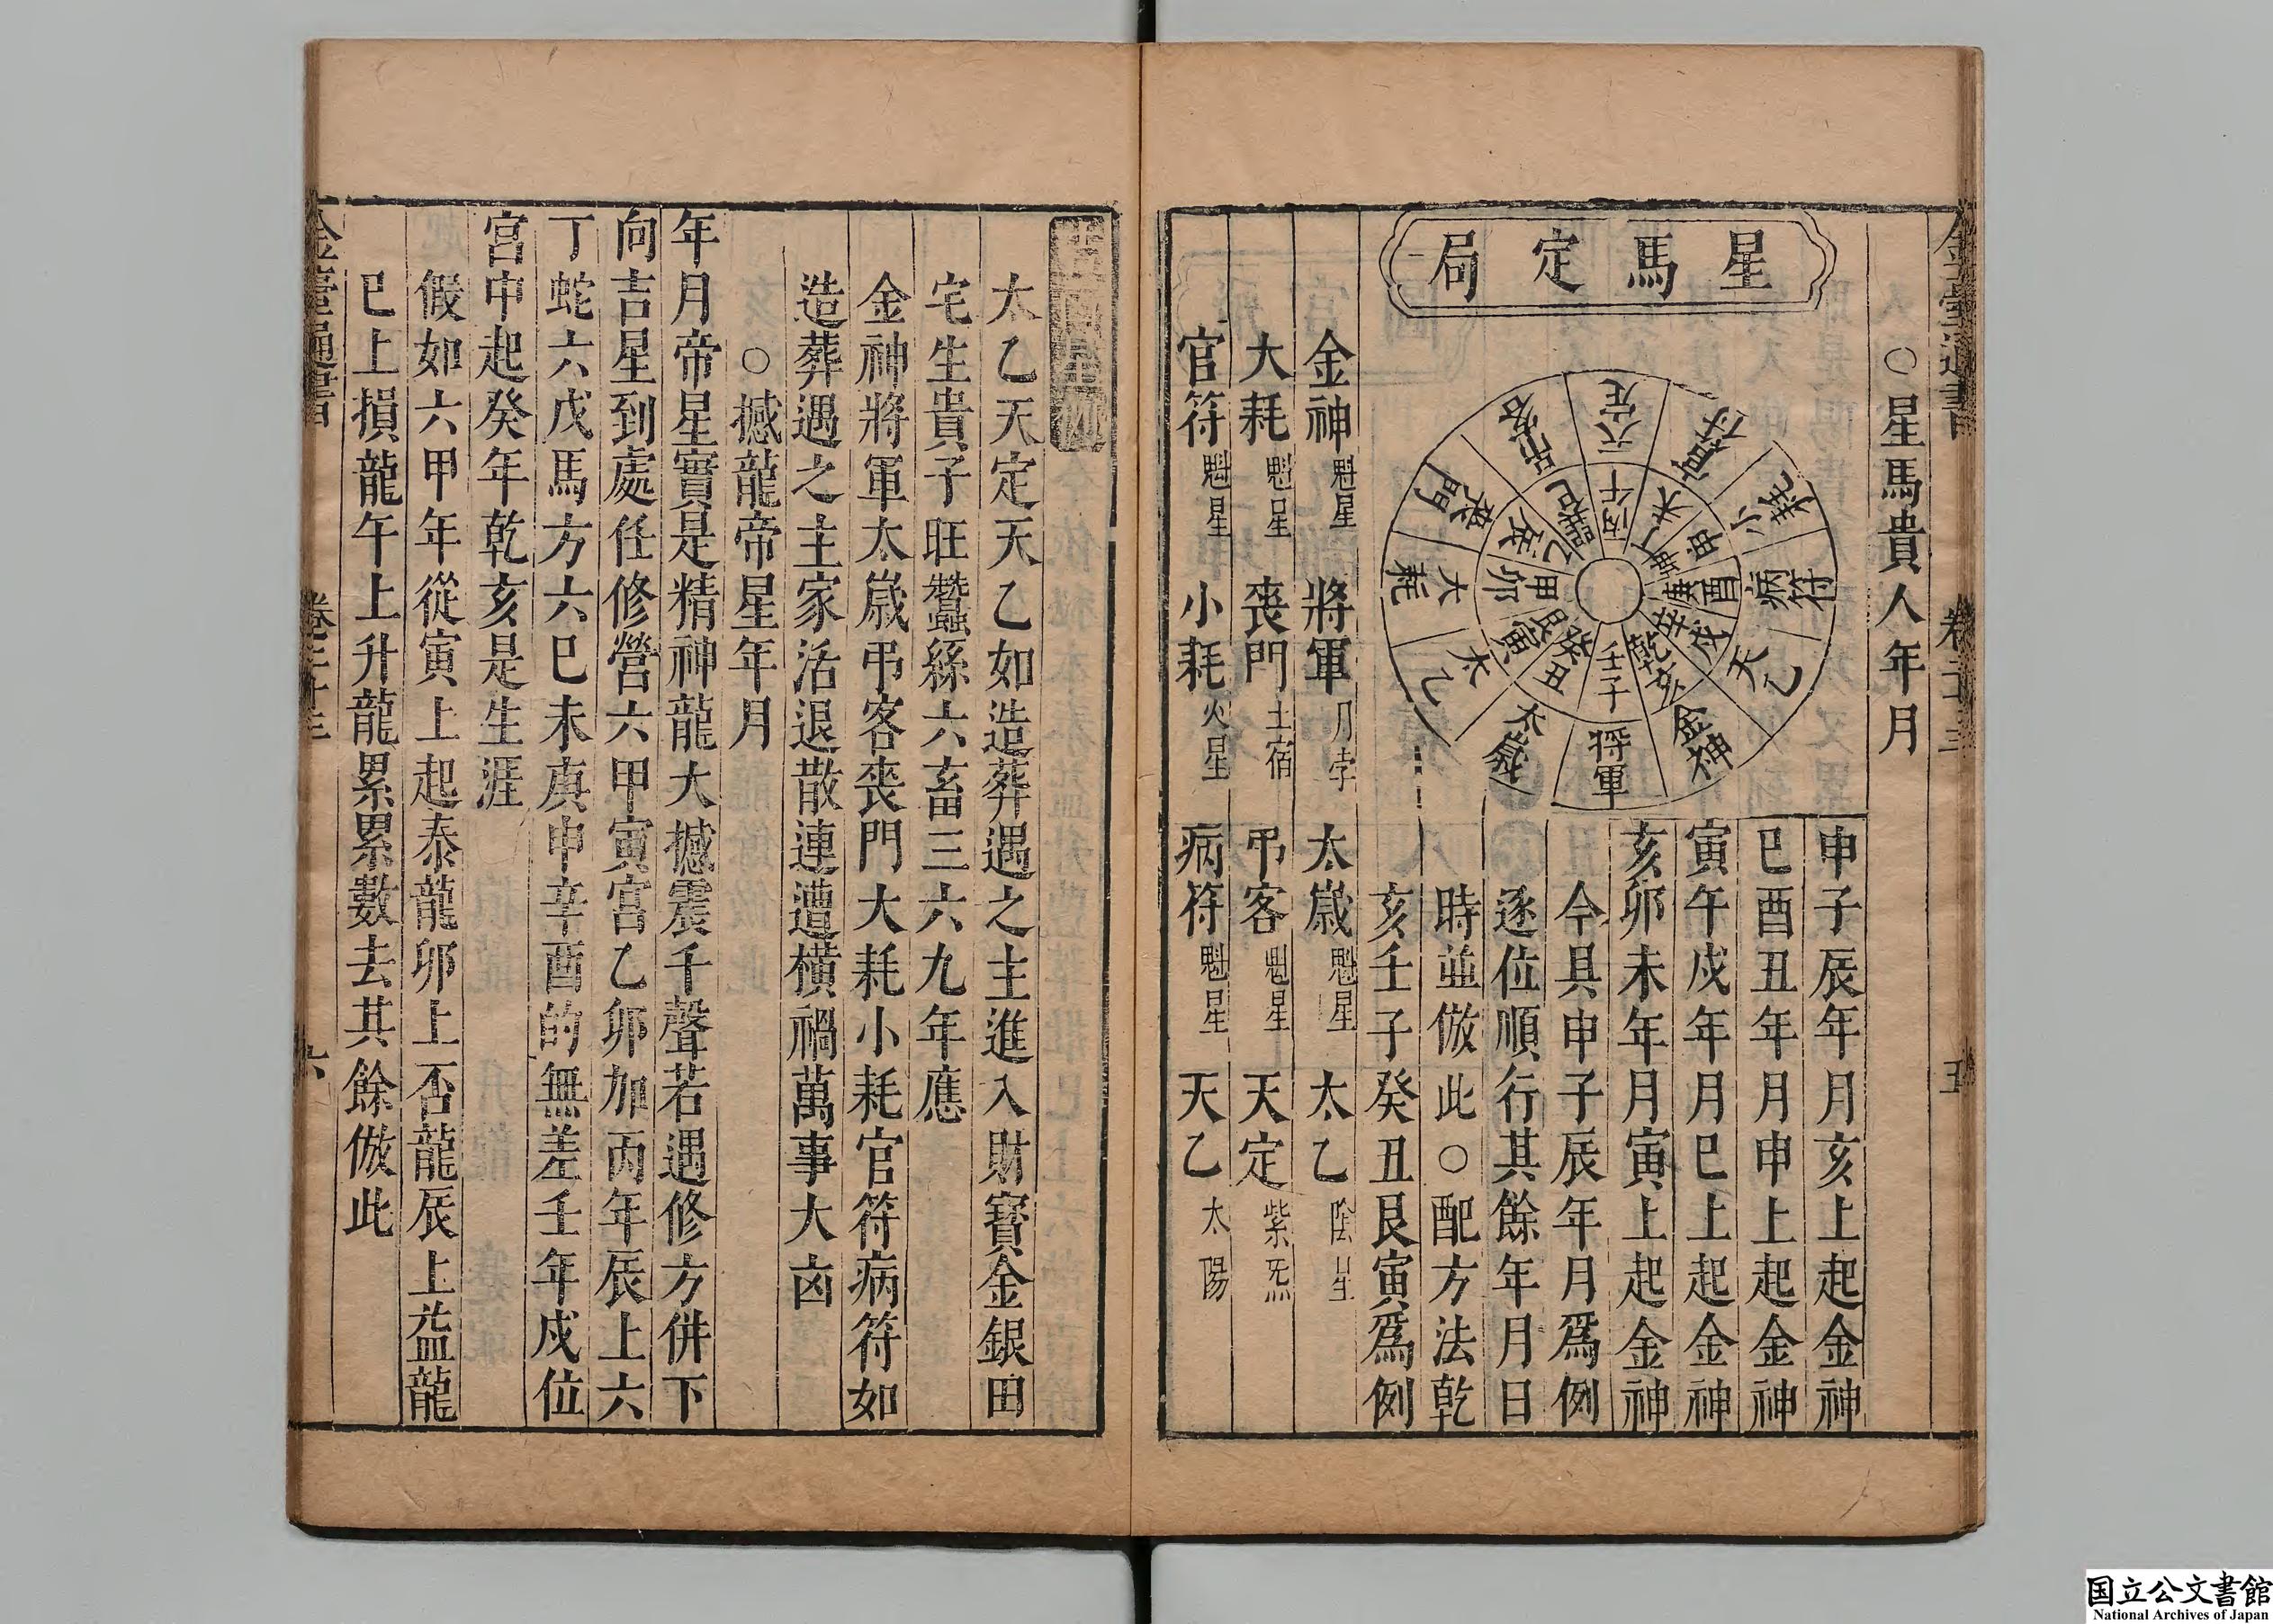 ○星馬貴人年月
星馬定局
申子辰年月亥上起金神
巳酉丑年月申上起金神
寅午戌年月巳上起金神
亥卯未年月寅上起金神
今具申子辰年月爲例
逐位順行其餘年月日
時並倣此○配方法乾
亥壬子癸丑艮寅爲例
六定
官符
小耗
病符
天乙
金神
將軍
太歲
太乙
大耗
喪門
弔客
丙午
丁未
坤申
庚酉
辛戌
乾亥
壬子
癸丑
艮寅
甲卯
乙辰
巽巳
金神魁星 將軍月孛 太歲魁星 太乙陰星
大耗魁星 喪門土宿 弔客魁星 天定紫炁
官符魁星 小耗火星 病符魁星 天乙太陽
五
太乙天定天乙如造葬遇之主進入財寶金銀田
宅生貴子旺蠶絲六畜三六九年應
金神將軍太歲弔客喪門大耗小耗官符病符如
造葬遇之主家活退散連遭橫禍萬事大凶
○撼龍帝星年月
年月帝星實是精神龍大撼震千聲若遇修方併下
向吉星到處任修營六甲寅宮乙卯加丙年辰上六
丁蛇六戊馬方六巳未庚申辛酉的無差壬年戌位
宮中起癸年乾亥是生涯
假如六甲年從寅上起泰龍卯上否龍辰上益龍
巳上損龍午上升龍累累數去其餘倣此
卷二十三
六
国立公文書館
National Archives of Japan